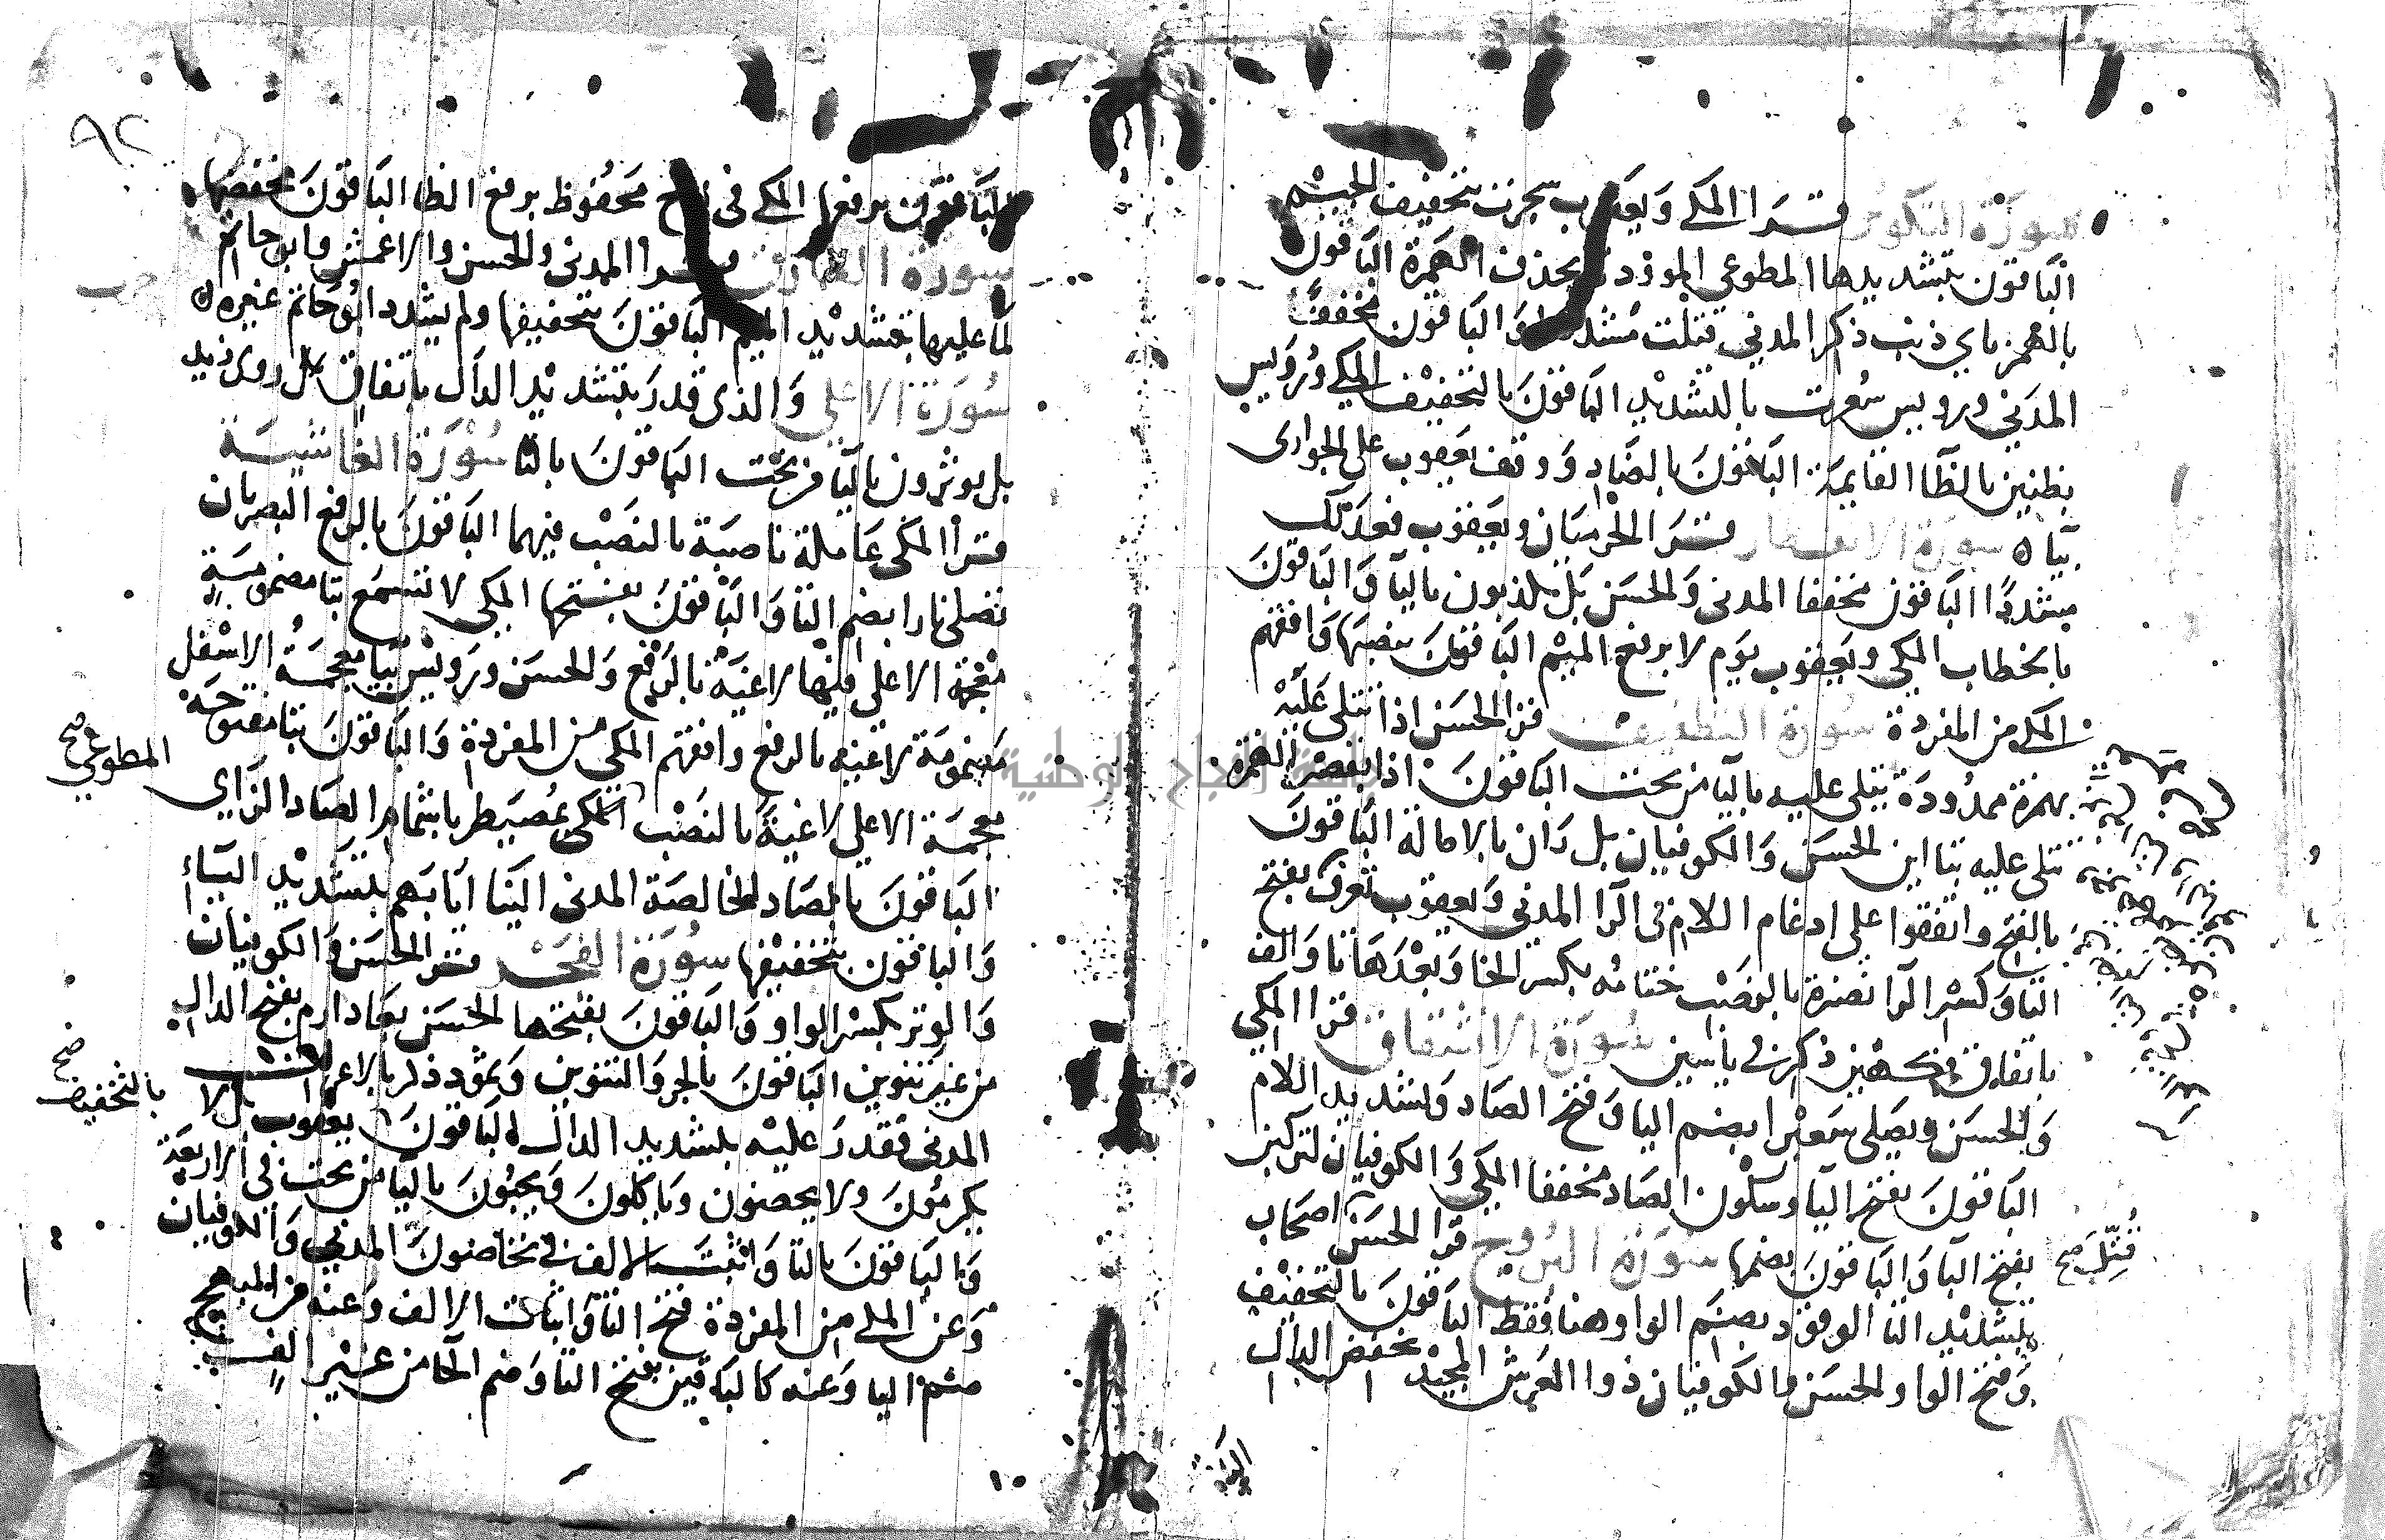 سورة التكوير قرا المكي ويعقوب سجرت بتخفيف الجيم
الباقون بتشديدها المطوعي الموودة بحذف الهمزة الباقون
بالهمز باي ذنب ذكر المدني قتلت مشددا والباقون مخففا
المدني ورويس سعرت بالتشديد الباقون بالتخفيف المكي ورويس
بظنين بالظا القايمة الباقون بالضاد ووقف يعقوب على الجوارى
بيا ه سورة الانفطار قرا الحرميان ويعقوب فعدلك
مشددا الباقون مخففا المدني والحسن بل يكذبون باليا والباقون
بالخطاب المكي ويعقوب يوم لا برفع الميم الباقون بنصبها وافقهم
المكي من المفردة سورة التطفيف قرا الحسن اذا تتلى عليه
بهمزة ممدودة يتلى عليه باليا من تحت الباقون اذا بقصر الهمزة
تتلى عليه بتا ابن الحسن والكوفيان بل ران بالامالة الباقون
بالفتح واتفقوا على ادغام اللام في الرا المدني ويعقوب تعرف بفتح
التا وكسر الرا نضرة بالنصب ختامه بكسر الخا وبعدها تا والف
باتفاق فكهين ذكر في ياسين سورة الانشقاق قرا المكي
والحسن ويصلى سعيرا بضم اليا وفتح الصاد وتشديد اللام
الباقون بفتح اليا وسكون الصاد مخففا المكي والكوفيان لتركبن
بفتح البا والباقون بضمها سورة البروج قرا الحسن اصحاب
قتل صح
بتشديد التا الوقود بضم الواو هنا فقط الباقون بالتخفيف
وفتح الواو والحسن والكوفيان ذوا العرش المجيد بخفض الدال
الباقون برفعها المكي في لوح محفوظ برفع الظا الباقون بخفضها
سورة الطارق قرا المدني والحسن والاعمش وابو حاتم
لما عليها بتشديد الميم الباقون بتخفيفها ولم يشدد ابو حاتم غيره ه
سورة الاعلى والذى قدر بتشديد الدال باتفاق بل روى زيد
بل يوثرون باليا من تحت الباقون بالتا سورة الغاشية
قرا المكي عاملة ناصبة بالنصب فيهما الباقون بالرفع البصريان
تصلى نارا بضم التا والباقون بفتحها المكي لا تسمع بتا مضمومة
معجمة الاعلى فيها لاغية بالرفع والحسن ورويس بيا معجمة الاسفل
مضمومة لاغية بالرفع وافقهم المكي من المفردة والباقون بتا مفتوحة
المطوعي صح
معجمة الاعلى لاغية بالنصب المكي بمصيطر باشمام الصاد الزاي
الباقون بالصاد الخالصة المدني الينا ايابهم بتشديد الياء
والباقون بتخفيفها سورة الفجر قرا الحسن والكوفيان
والوتر بكسر الواو والباقون بفتحها الحسن بعاد ارم بفتح الدال
من غير تنوين الباقون بالجر والتنوين وثمود ذكر بالاعراف
بالتخفيف صح
المدني فقدر عليه بتشديد الدال الباقون يعقوب بل لا
يكرمون ولا يحضون وياكلون ويحبون باليا من تحت في الاربعة
والباقون بالتا واثبت الالف في تحاضون المدني والكوفيان
وعن المكي من المفردة فتح التا واثبات الالف وعنه من المبهج
ضم اليا وعنه كالباقين بفتح التا وضم الحا من غير الف